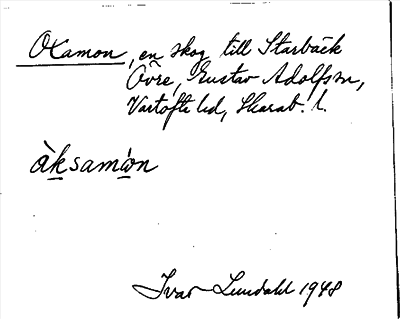 Oxamon, en skog till Starbäck
Övre, Gustav Adolfs sn,
Vartofta hd, Skarab. l.
àksamòn
Ivar Lundahl 1948